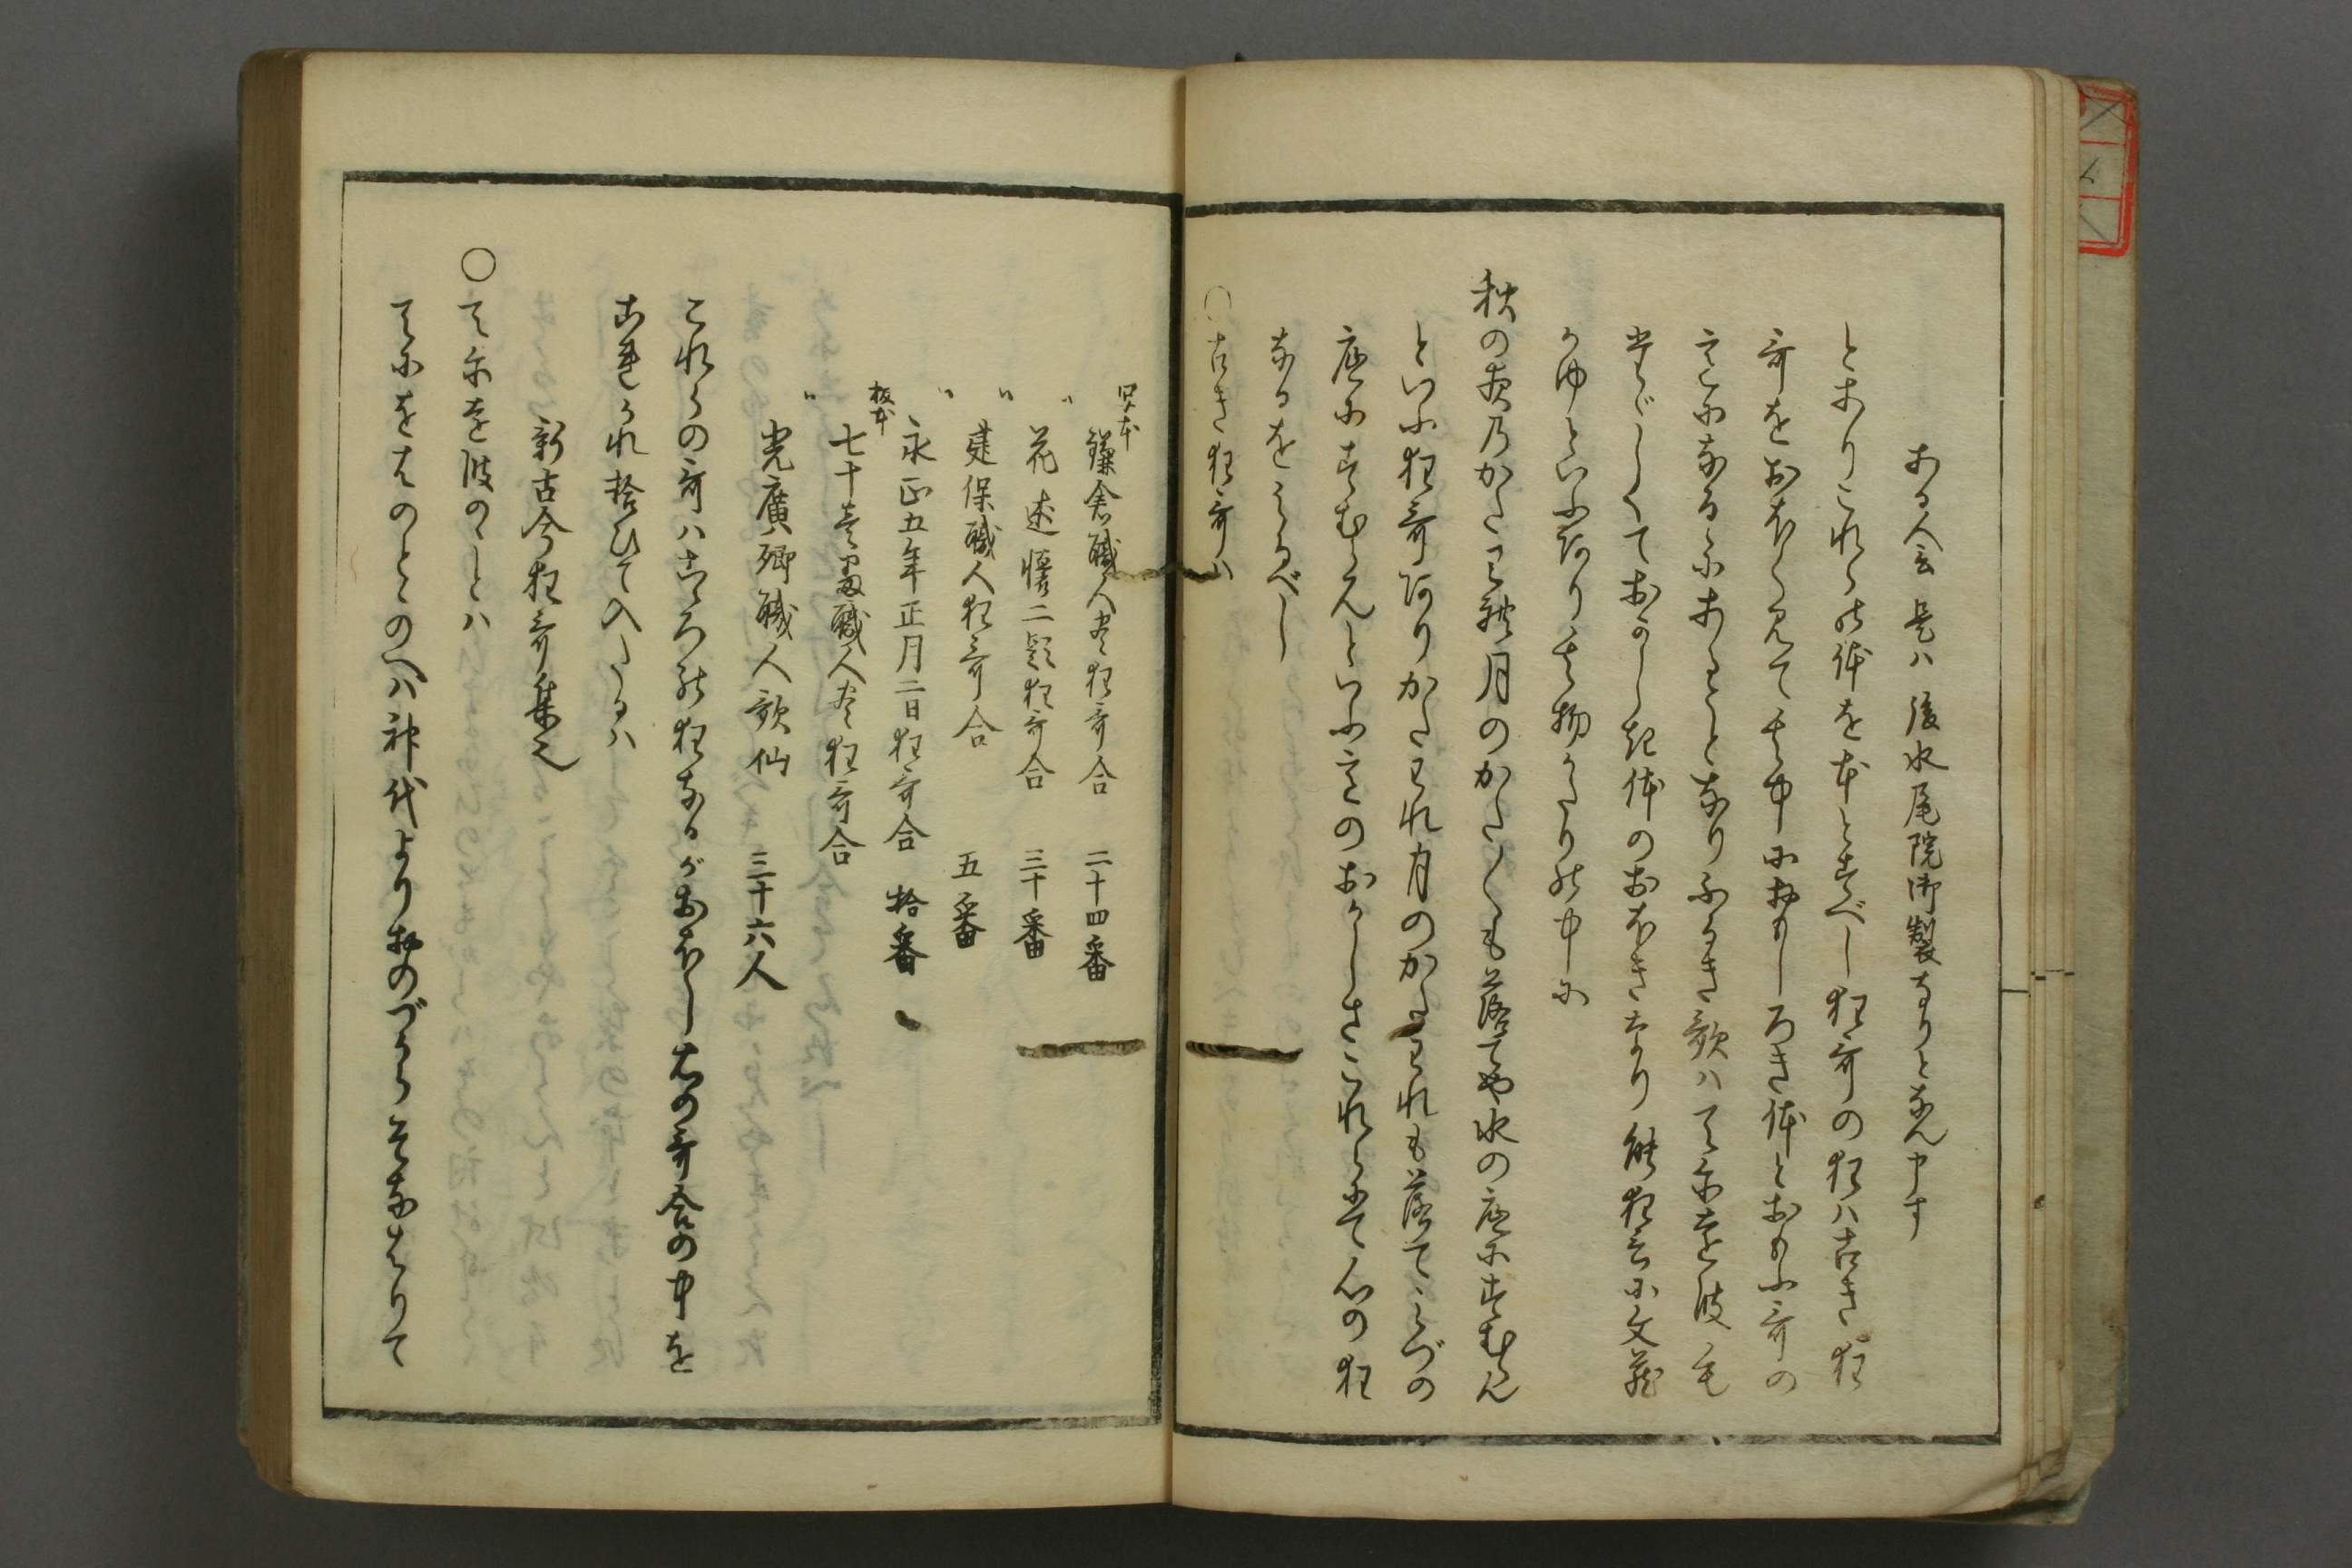 ある人云是ハ後水尾院御製なりとなん申す
とありこれらの体を本とすべし狂哥の狂ハ古き狂
哥をおほく見て其中におもしろき体とおもふ哥の
こゝになるにあることなりふるき歌ハてにを波も
しておかしき体のおほきなり能狂言に文蔵
かゆといふ有り其物かたりの中に
秋の夜乃かたわれ月のかた〳〵も落てや水の底にすむらん
といふ狂哥ありかたわれ月のかたわれも落てみづの
底にすむらんといふ意のおかしさこれらにて心の狂
なるをしるべし
○古き狂哥ハ
写本
鎌倉職人尽狂哥合 二十四番
〃 花述懐二題狂哥合 三十番
〃 建保職人狂哥合 五番
〃 永正五年正月二日狂哥合 拾番
板本
七十壱番職人尽狂哥合
〃 光廣卿職人歌仙 三十六人
これらの哥ハこゝろの狂なるがおほし右の哥合の中を
ゑらまれ拾ひて入たるハ
新古今狂哥集也
○てにを波のことハ
てにをはのとゝのへハ神代よりおのづからそなはりて